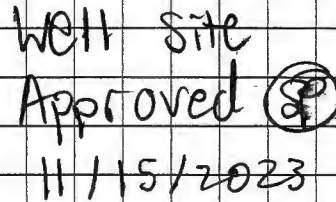 Well Site
Approved
11/15/2023